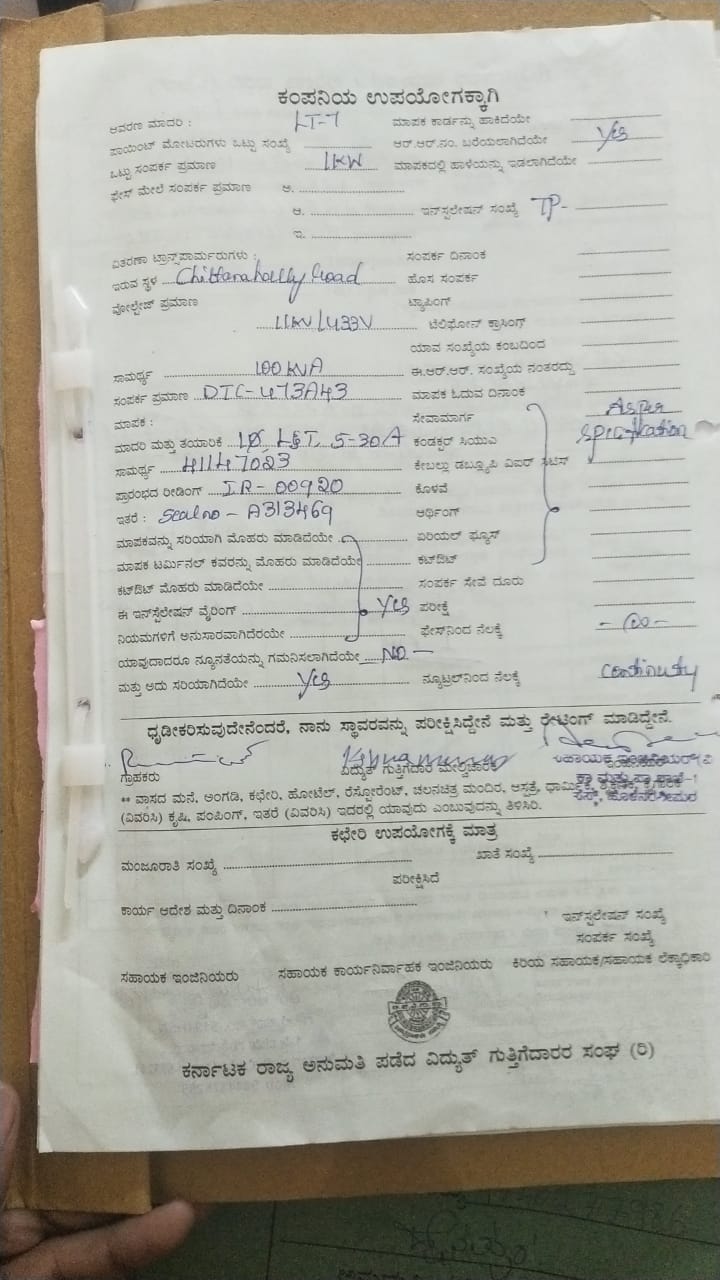 ಕಂಪನಿಯ ಉಪಯೋಗಕ್ಕಾಗಿ
ಆವರಣ ಮಾದರಿ : LT-7 ಮಾಪಕ ಕಾರ್ಡನ್ನು ಹಾಕಿದೆಯೇ
ಪಾಯಿಂಟ್ ಮೋಟರುಗಳು ಒಟ್ಟು ಸಂಖ್ಯೆ ಆರ್.ಆರ್.ನಂ. ಬರೆಯಲಾಗಿದೆಯೇ Yes
ಒಟ್ಟು ಸಂಪರ್ಕ ಪ್ರಮಾಣ 1KW ಮಾಪಕದಲ್ಲಿ ಹಾಳೆಯನ್ನು ಇಡಲಾಗಿದೆಯೇ
ಫೇಸ್ ಮೇಲೆ ಸಂಪರ್ಕ ಪ್ರಮಾಣ ಅ.
ಆ. ಇನ್‌ಸ್ಟಲೇಷನ್ ಸಂಖ್ಯೆ TP-
ಇ.
ವಿತರಣಾ ಟ್ರಾನ್ಸ್‌ಪಾರ್ಮರುಗಳು : ಸಂಪರ್ಕ ದಿನಾಂಕ
ಇರುವ ಸ್ಥಳ Chittanahally Road ಹೊಸ ಸಂಪರ್ಕ
ವೋಲ್ಟೇಜ್ ಪ್ರಮಾಣ ಟ್ಯಾಪಿಂಗ್
11KV/433V ಟೆಲಿಫೋನ್ ಕ್ರಾಸಿಂಗ್
ಯಾವ ಸಂಖ್ಯೆಯ ಕಂಬದಿಂದ
ಸಾಮರ್ಥ್ಯ 100KVA ಈ.ಆರ್.ಆರ್. ಸಂಖ್ಯೆಯ ನಂತರದ್ದು
ಸಂಪರ್ಕ ಪ್ರಮಾಣ DTC-473A43 ಮಾಪಕ ಓದುವ ದಿನಾಂಕ
ಮಾಪಕ : ಸೇವಾಮಾರ್ಗ As per
ಮಾದರಿ ಮತ್ತು ತಯಾರಿಕೆ 1Ø, L&T, 5-30A ಕಂಡಕ್ಟರ್ ಸಿಯುಎ specification
ಸಾಮರ್ಥ್ಯ 41147023 ಕೇಬಲ್ಲು ಡಬ್ಲ್ಯೂಪಿ ವಿಎರ್
ಪ್ರಾರಂಭದ ರೀಡಿಂಗ್ IR-00920 ಕೊಳವೆ
ಇತರೆ : Seal no - A313469 ಅರ್ಥಿಂಗ್
ಮಾಪಕವನ್ನು ಸರಿಯಾಗಿ ಮೊಹರು ಮಾಡಿದೆಯೇ ಏರಿಯಲ್ ಫ್ಯೂಸ್
ಮಾಪಕ ಟರ್ಮಿನಲ್ ಕವರನ್ನು ಮೊಹರು ಮಾಡಿದೆಯೇ ಕಟ್‌ಔಟ್
ಕಟ್‌ಔಟ್ ಮೊಹರು ಮಾಡಿದೆಯೇ ಸಂಪರ್ಕ ಸೇವೆ ದೂರು
ಈ ಇನ್‌ಸ್ಟಲೇಷನ್ ವೈರಿಂಗ್ Yes ಪರೀಕ್ಷೆ
ನಿಯಮಗಳಿಗೆ ಅನುಸಾರವಾಗಿದೆರಯೇ ಫೇಸ್‌ನಿಂದ ನೆಲಕ್ಕೆ
ಯಾವುದಾದರೂ ನ್ಯೂನತೆಯನ್ನು ಗಮನಿಸಲಾಗಿದೆಯೇ NO —
ಮತ್ತು ಅದು ಸರಿಯಾಗಿದೆಯೇ Yes ನ್ಯೂಟ್ರಲ್‌ನಿಂದ ನೆಲಕ್ಕೆ continuty
ಧೃಡೀಕರಿಸುವುದೇನೆಂದರೆ, ನಾನು ಸ್ಥಾವರವನ್ನು ಪರೀಕ್ಷಿಸಿದ್ದೇನೆ ಮತ್ತು ರೇಟಿಂಗ್ ಮಾಡಿದ್ದೇನೆ.
ಗ್ರಾಹಕರು ವಿದ್ಯುತ್ ಗುತ್ತಿಗೆದಾರ ಮೇಲ್ವಿಚಾರಕ
** ವಾಸದ ಮನೆ, ಅಂಗಡಿ, ಕಛೇರಿ, ಹೋಟೆಲ್, ರೆಸ್ಟೋರೆಂಟ್, ಚಲನಚಿತ್ರ ಮಂದಿರ, ಆಸ್ಪತ್ರೆ, ಧಾರ್ಮಿಕ,
(ವಿವರಿಸಿ) ಕೃಷಿ, ಪಂಪಿಂಗ್, ಇತರೆ (ವಿವರಿಸಿ) ಇದರಲ್ಲಿ ಯಾವುದು ಎಂಬುವುದನ್ನು ತಿಳಿಸಿರಿ.
ಕಛೇರಿ ಉಪಯೋಗಕ್ಕೆ ಮಾತ್ರ
ಮಂಜೂರಾತಿ ಸಂಖ್ಯೆ ಖಾತೆ ಸಂಖ್ಯೆ
ಪರೀಕ್ಷಿಸಿದೆ
ಕಾರ್ಯ ಆದೇಶ ಮತ್ತು ದಿನಾಂಕ
ಇನ್‌ಸ್ಟಲೇಷನ್ ಸಂಖ್ಯೆ
ಸಂಪರ್ಕ ಸಂಖ್ಯೆ
ಸಹಾಯಕ ಇಂಜಿನಿಯರು ಸಹಾಯಕ ಕಾರ್ಯನಿರ್ವಾಹಕ ಇಂಜಿನಿಯರು ಕಿರಿಯ ಸಹಾಯಕ/ಸಹಾಯಕ ಲೆಕ್ಕಾಧಿಕಾರಿ
ಕರ್ನಾಟಕ ರಾಜ್ಯ ಅನುಮತಿ ಪಡೆದ ವಿದ್ಯುತ್ ಗುತ್ತಿಗೆದಾರರ ಸಂಘ (ರಿ)